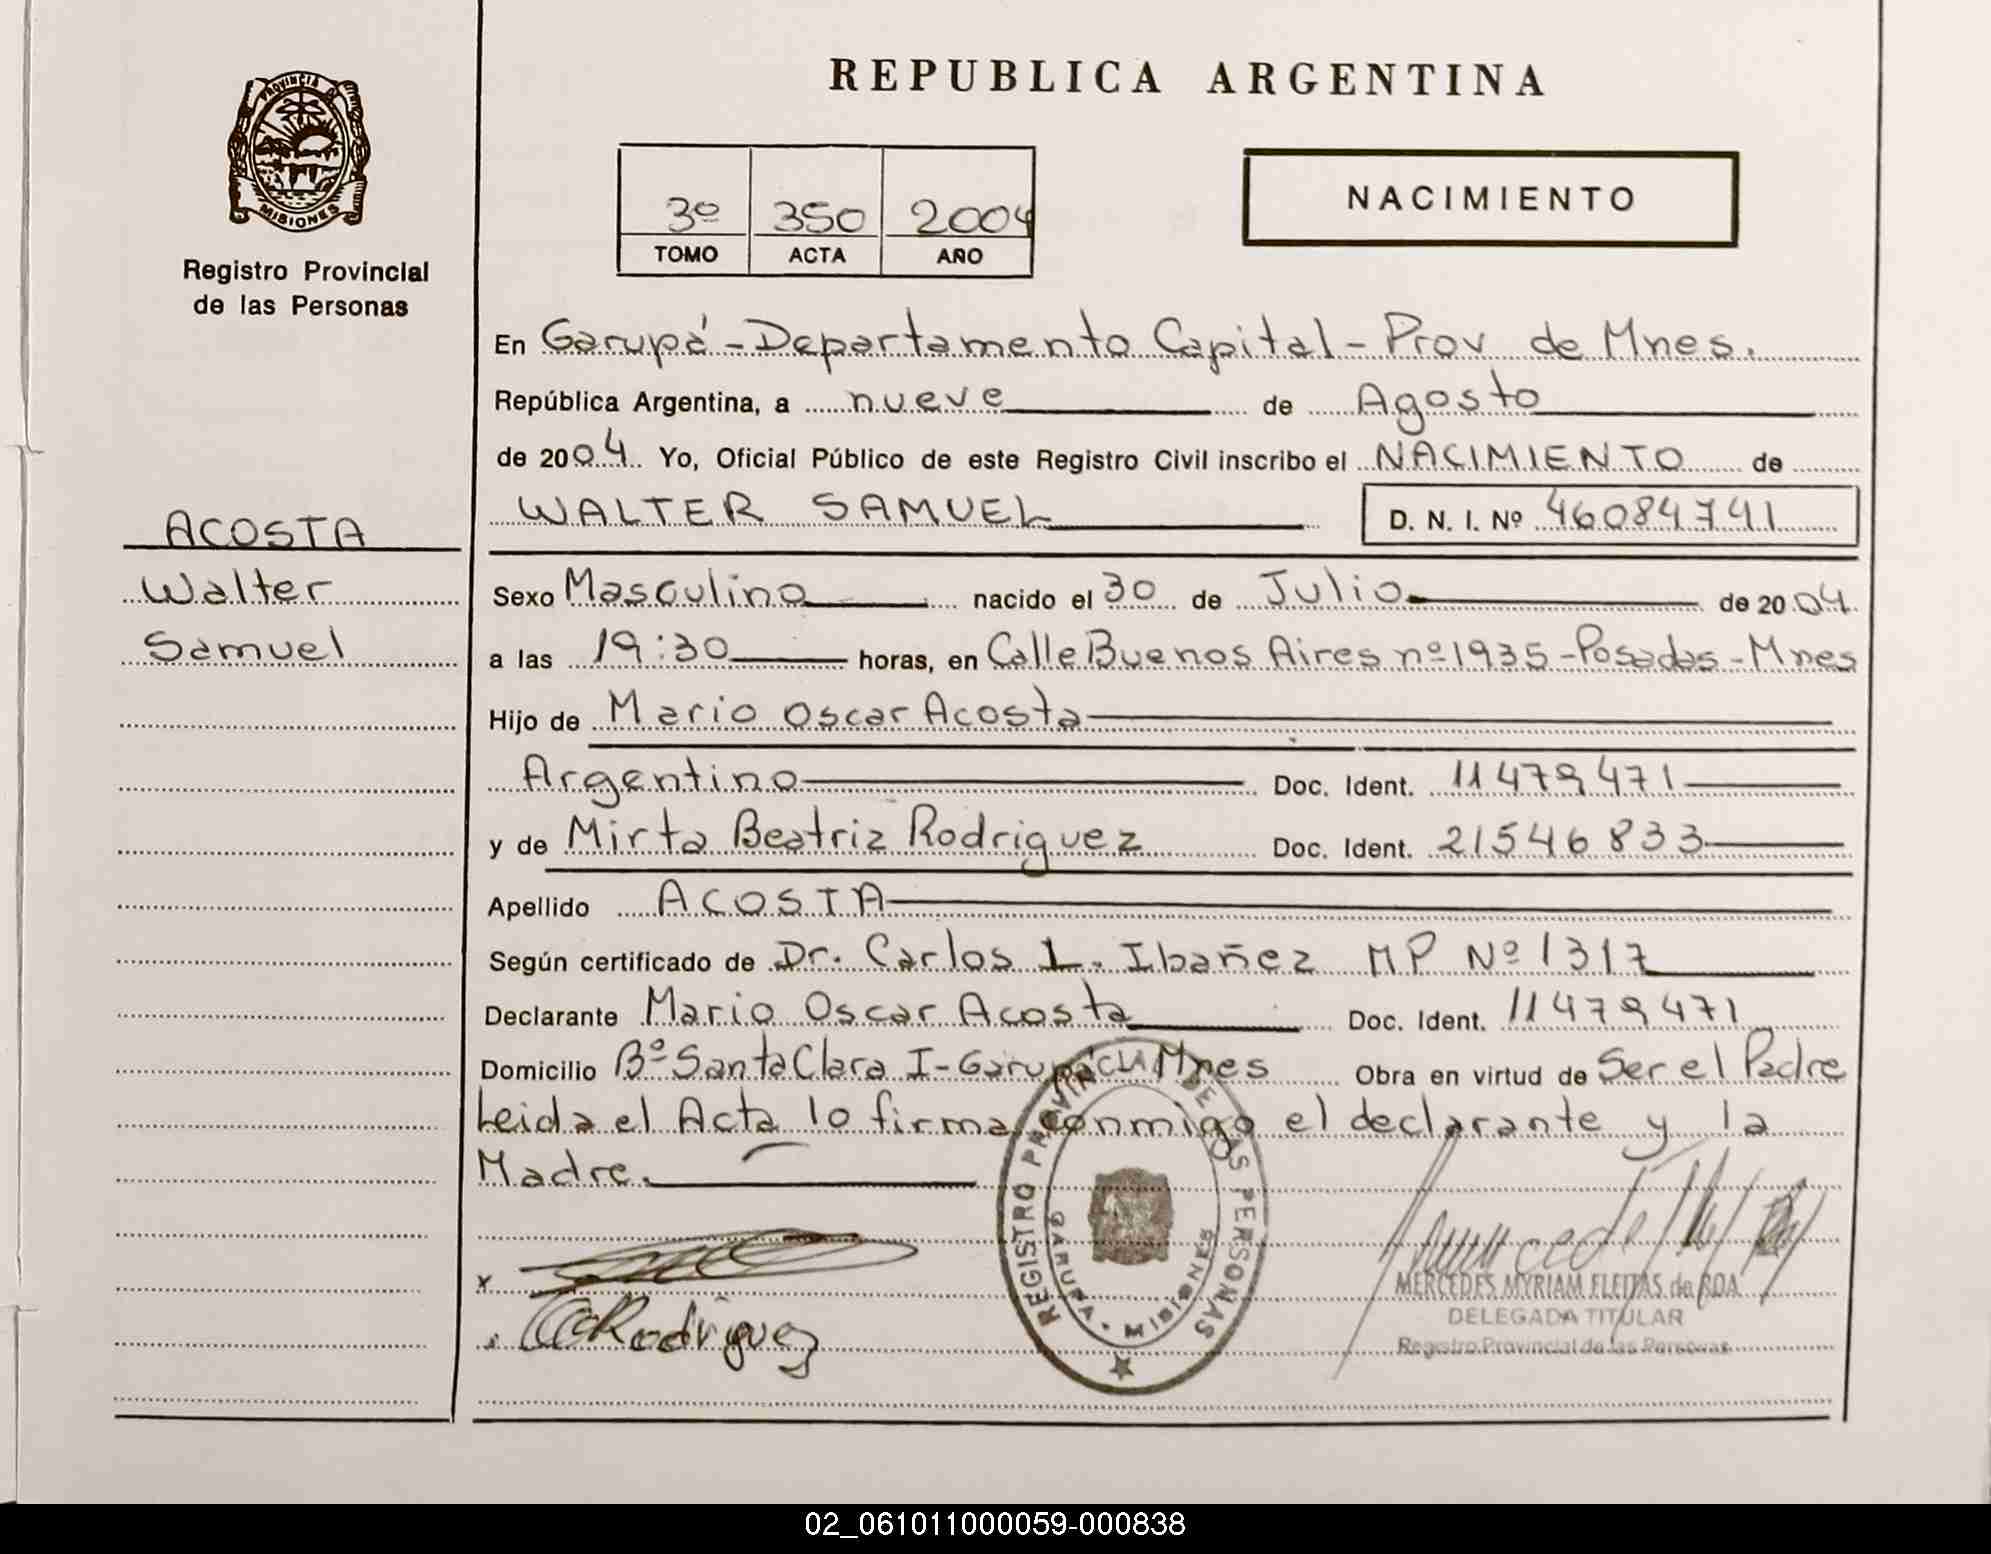 PROVINCIA D
MISIONES
Registro Provincial
de las Personas
ACOSTA
Walter
Samuel
REPUBLICA ARGENTINA
3º 350 2004
TOMO ACTA AÑO
NACIMIENTO
En Garupá - Departamento Capital - Prov de Mnes.
República Argentina, a nueve de Agosto
de 2004. Yo, Oficial Público de este Registro Civil inscribo el NACIMIENTO de
WALTER SAMUEL D. N. I. Nº 46084741
Sexo Masculino nacido el 30 de Julio de 2004.
a las 19:30 horas, en Calle Buenos Aires nº 1935 - Posadas - Mnes
Hijo de Mario Oscar Acosta
Argentino Doc. Ident. 11479471
y de Mirta Beatriz Rodriguez Doc. Ident. 21546833
Apellido ACOSTA
Según certificado de Dr. Carlos L. Ibañez MP Nº 1317
Declarante Mario Oscar Acosta Doc. Ident. 11479471
Domicilio Bº Santa Clara I - Garupá Mnes Obra en virtud de Ser el Padre
Leida el Acta lo firma conmigo el declarante y la
Madre.
REGISTRO PROVINCIAL DE LAS PERSONAS
GARUPA - MISIONES
x
Rodriguez
MERCEDES MYRIAM FLEITAS de ROA
DELEGADA TITULAR
Registro Provincial de las Personas
02_061011000059-000838